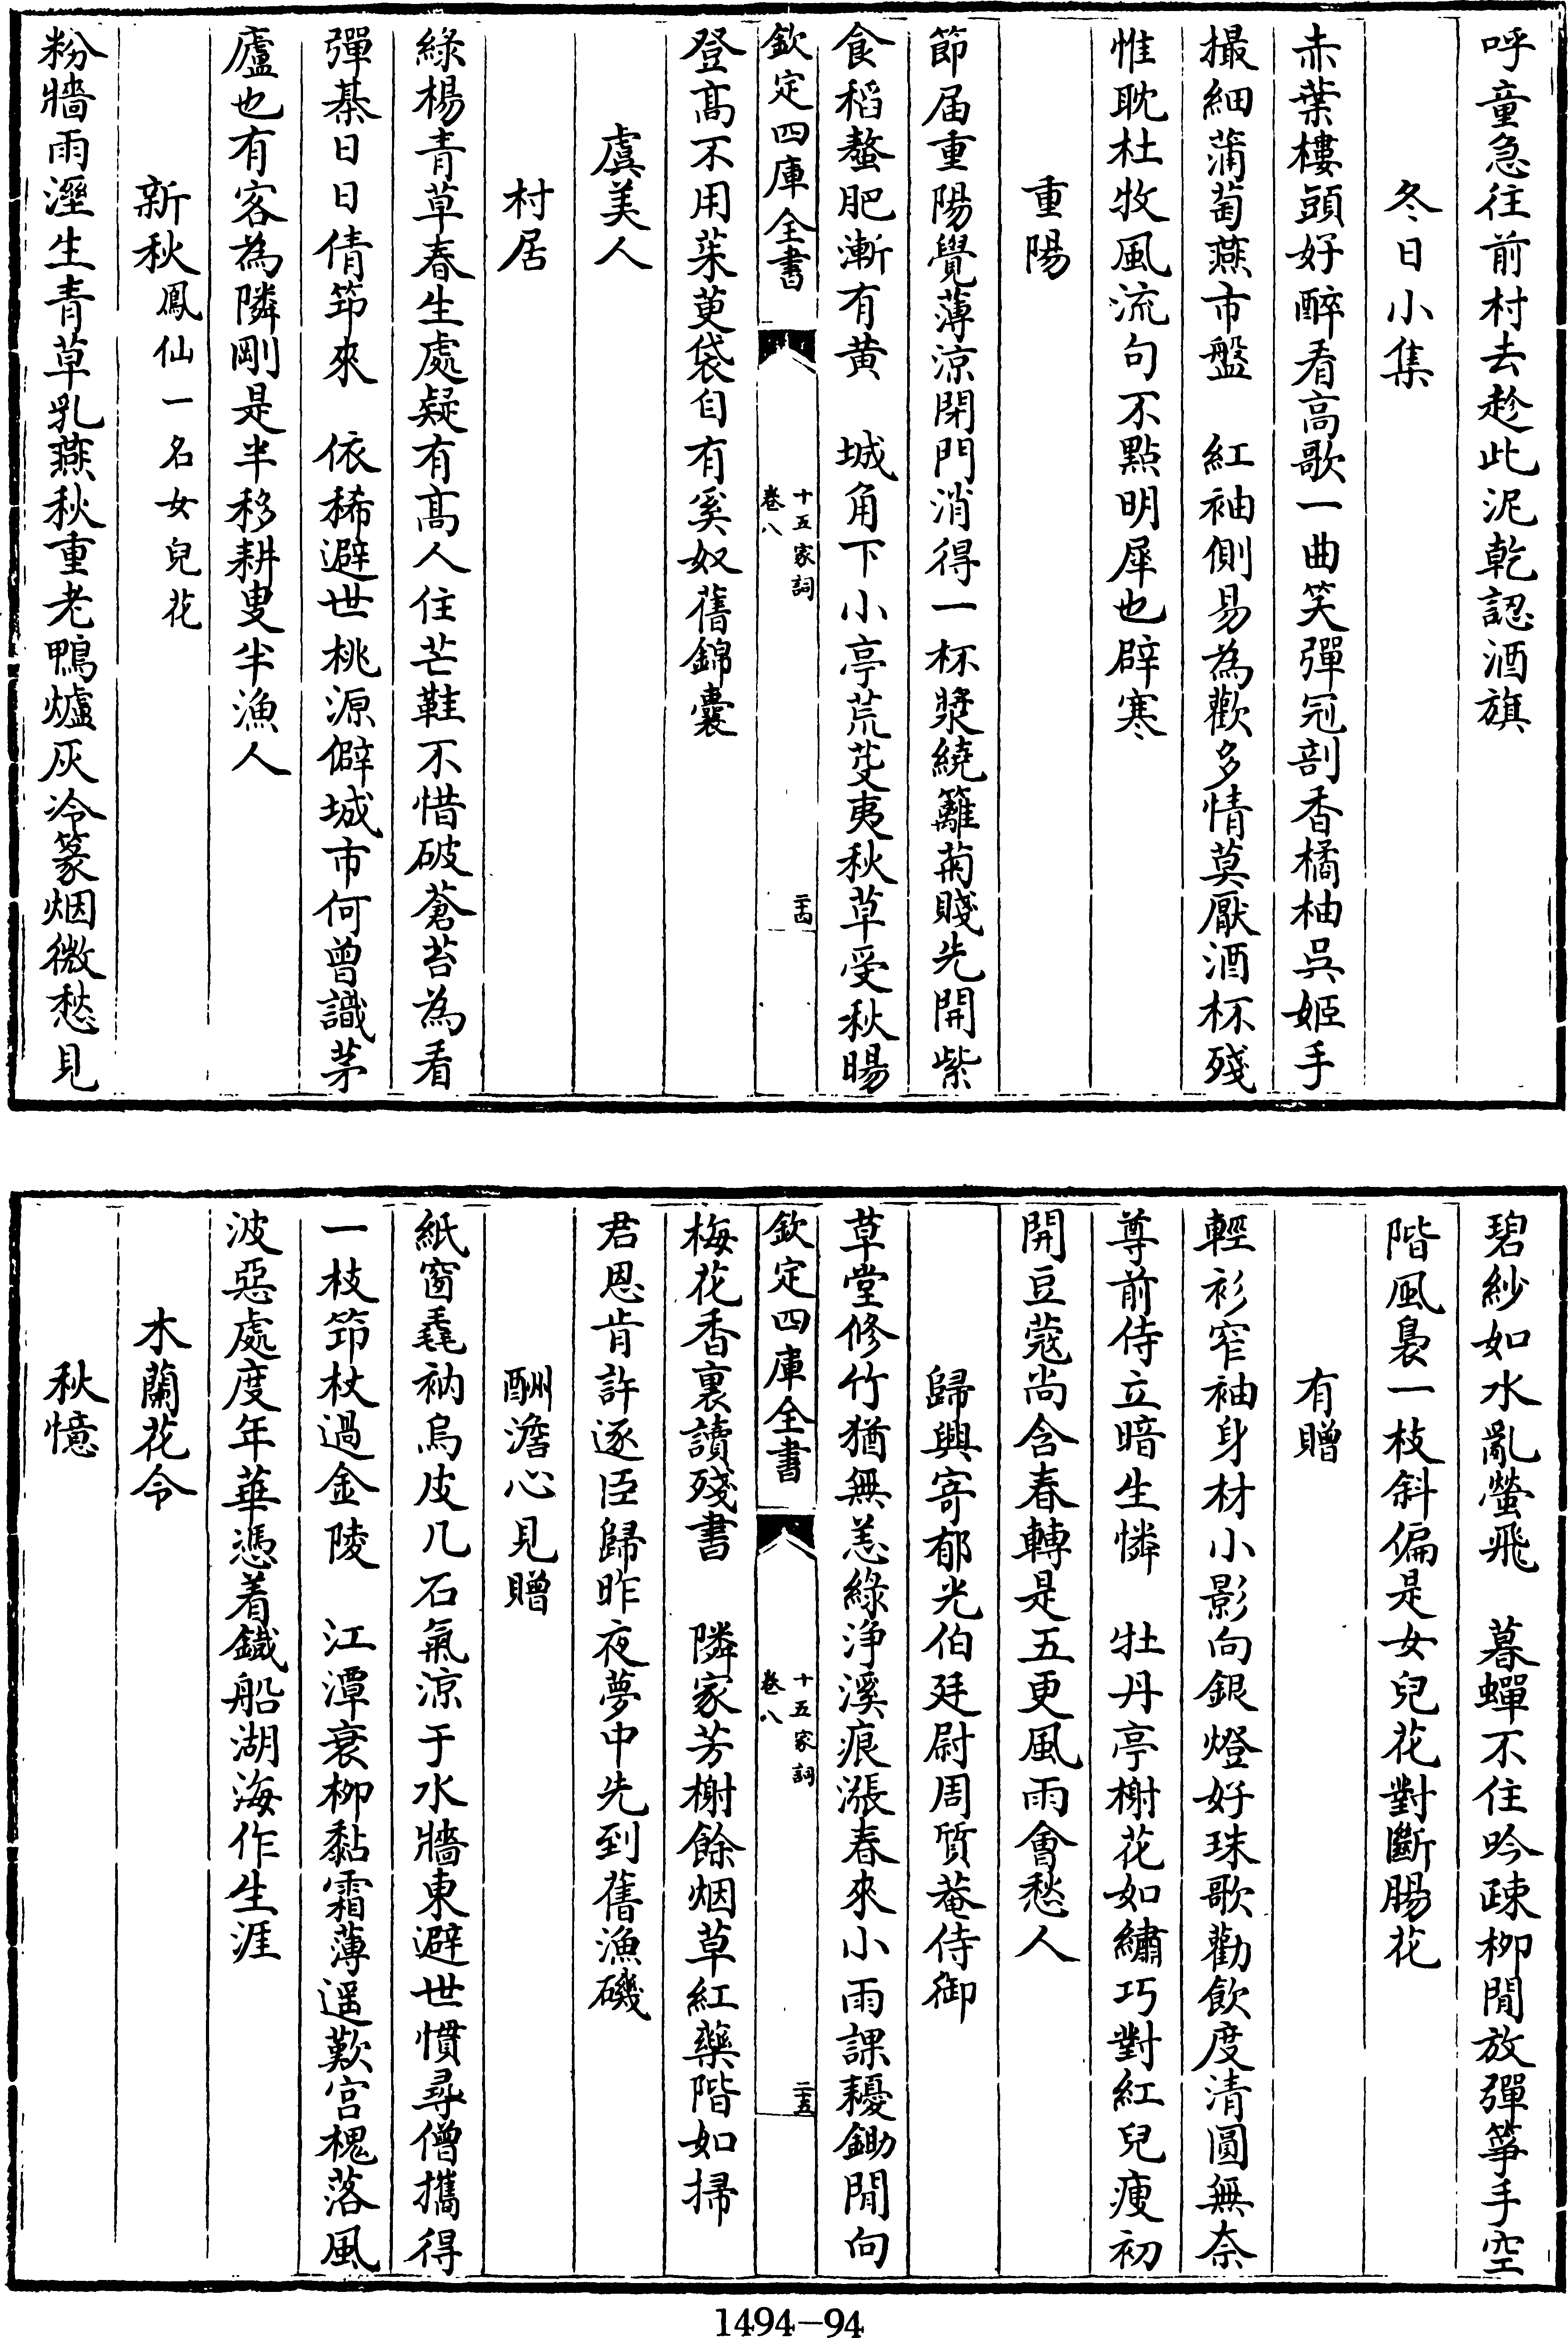 呼童急往前村去趁此泥乾認酒旗
冬日小集
赤葉樓頭好醉看高歌一曲笑彈冠剖香橘柚吳姬手
撮細蒲萄燕市盤　紅袖側易為歡多情莫厭酒杯殘
惟耽杜牧風流句不點明犀也辟寒
重陽
節届重陽覺薄涼閉門消得一杯漿繞籬菊賤先開紫
食稻螯肥漸有黄　城角下小亭荒芟夷秋草受秋暘
欽定四庫全書
十五家詞
卷八
二十四
登髙不用茱萸袋自有奚奴舊錦囊
虞美人
村居
綠楊青草春生處疑有髙人住芒鞋不惜破蒼苔為看
彈棊日日倩筇來　依稀避世桃源僻城市何曾識茅
廬也有客為隣剛是半移耕叟半漁人
新秋鳳仙一名女兒花
粉牆雨溼生青草乳燕秋重老鴨爐灰冷篆烟微愁見
碧紗如水亂螢飛　暮蟬不住吟疎柳閒放彈箏手空
階風裊一枝斜偏是女兒花對斷腸花
有贈
輕衫窄袖身材小影向銀燈好珠歌勸飲度清圓無奈
尊前侍立暗生憐　牡丹亭榭花如繡巧對紅兒瘦初
開豆蔻尚含春轉是五更風雨會愁人
歸興寄郁光伯廷尉周質菴侍御
草堂修竹猶無恙綠浄溪痕漲春來小雨課耰鋤閒向
欽定四庫全書
十五家詞
卷八
二十五
梅花香裏讀殘書　隣家芳榭餘烟草紅藥階如掃
君恩肯許逐臣歸昨夜夢中先到舊漁磯
酬澹心見贈
紙窗毳衲烏皮几石氣涼于水牆東避世慣尋僧攜得
一枝筇杖過金陵　江潭衰柳黏霜薄遥歎宫槐落風
波惡處度年華憑着鐵船湖海作生涯
木蘭花令
秋憶
1494—94